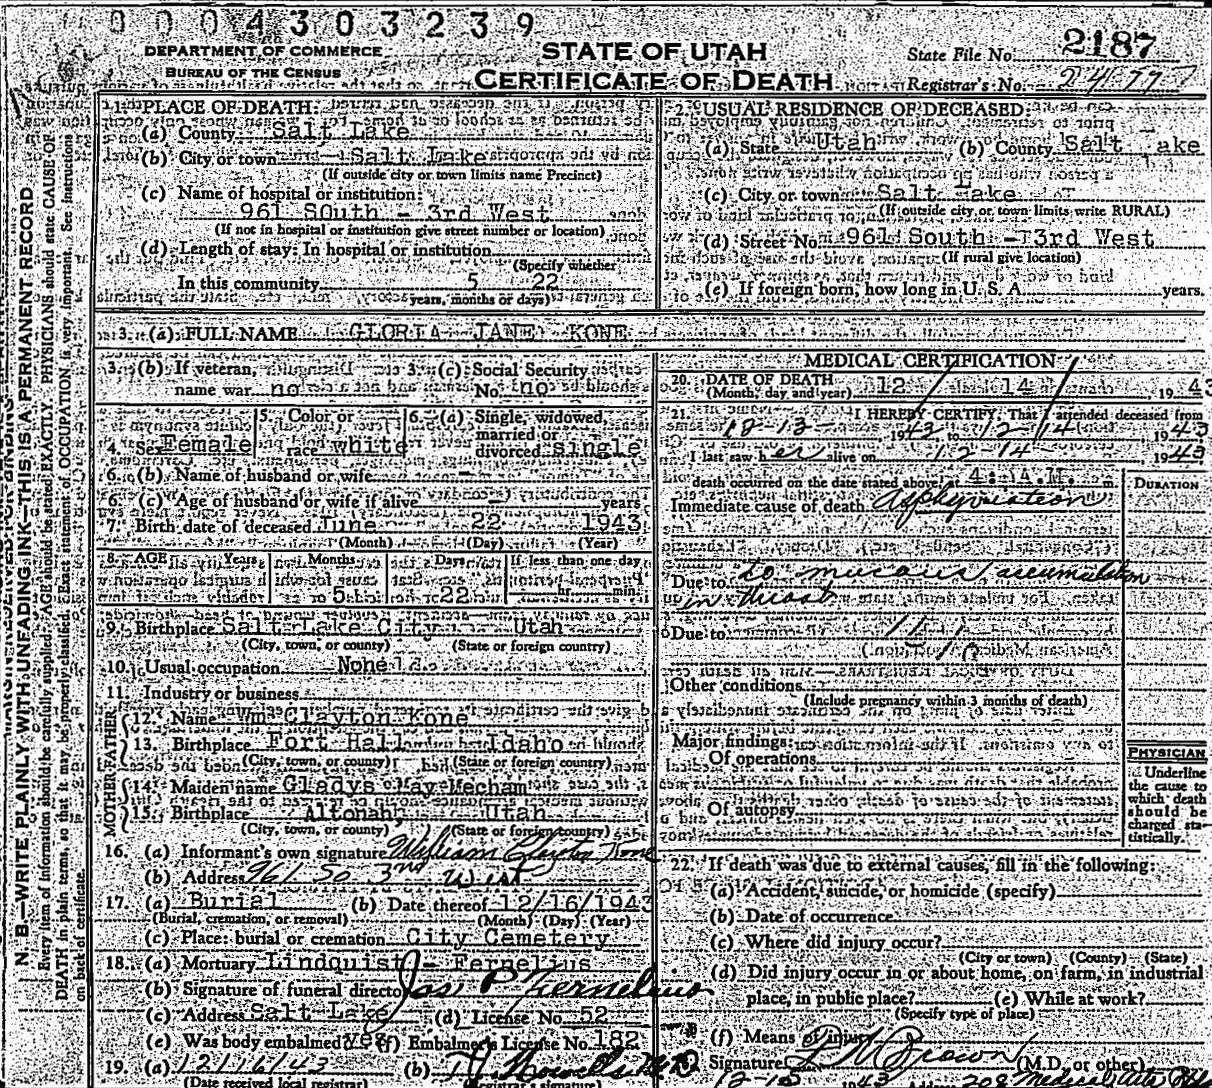 0004303239
DEPARTMENT OF COMMERCE
BUREAU OF THE CENSUS
STATE OF UTAH
CERTIFICATE OF DEATH
State File No. 2187
Registrar's No.
N. B.—WRITE PLAINLY WITH UNFADING INK—THIS IS A PERMANENT RECORD
Every item of information should be carefully supplied. AGE should be stated EXACTLY. PHYSICIANS should state CAUSE OF
DEATH in plain terms, so that it may be properly classified. Exact statement of OCCUPATION is very important. See instructions
on back of certificate.
1. PLACE OF DEATH:
(a) County Salt Lake
(b) City or town Salt Lake
(If outside city or town limits name Precinct)
(c) Name of hospital or institution:
961 SOuth - 3rd West
(If not in hospital or institution give street number or location)
(d) Length of stay: In hospital or institution
(Specify whether
In this community 5 22
years, months or days)
2. USUAL RESIDENCE OF DECEASED:
(a) State Utah (b) County Salt ake
(c) City or town Salt Lake
(If outside city or town limits write RURAL)
(d) Street No. 961 South - 3rd West
(If rural give location)
(e) If foreign born, how long in U. S. A. years.
3. (a) FULL NAME GLORIA JANE KONE
3. (b) If veteran,
name war no
3. (c) Social Security
No. no
4. Sex Female
5. Color or
race white
6. (a) Single, widowed,
married or
divorced single
6. (b) Name of husband or wife -
6. (c) Age of husband or wife if alive - years
7. Birth date of deceased June 22 1943
(Month) (Day) (Year)
8. AGE Years Months Days If less than one day
5 22 hr. min.
9. Birthplace Salt Lake City Utah
(City, town, or county) (State or foreign country)
10. Usual occupation None
11. Industry or business
FATHER
12. Name Wm Clayton Kone
13. Birthplace Fort Hall Idaho
(City, town, or county) (State or foreign country)
MOTHER
14. Maiden name Gladys May Mecham
15. Birthplace Altonah, Utah
(City, town, or county) (State or foreign country)
16. (a) Informant's own signature William Clayton Kone
(b) Address 961 So 3rd West
17. (a) Burial (b) Date thereof 12/16/1943
(Burial, cremation, or removal) (Month) (Day) (Year)
(c) Place: burial or cremation City Cemetery
18. (a) Mortuary Lindquist - Fernelius
(b) Signature of funeral director Jos P Fernelius
(c) Address Salt Lake (d) License No. 52
(e) Was body embalmed? yes (f) Embalmer's License No. 182
19. (a) 12/16/43 (b)
(Date received local registrar) (Registrar's signature)
MEDICAL CERTIFICATION
20. DATE OF DEATH 12 / 14 / 1943
(Month, day and year)
21. I HEREBY CERTIFY, That I attended deceased from
12-13- 1943 to 12/14 1943
I last saw her alive on 12-14 1943
death occurred on the date stated above at 4: A.M. m.
Immediate cause of death Asphyxiation
DURATION
Due to to mucous accumulation
in throat
Due to
Other conditions
(Include pregnancy within 3 months of death)
Major findings:
Of operations
Of autopsy
PHYSICIAN
Underline
the cause to
which death
should be
charged sta-
tistically.
22. If death was due to external causes, fill in the following:
(a) Accident, suicide, or homicide (specify)
(b) Date of occurrence
(c) Where did injury occur?
(City or town) (County) (State)
(d) Did injury occur in or about home, on farm, in industrial
place, in public place? (e) While at work?
(Specify type of place)
(f) Means of injury
Signature Brown (M.D. or other)
12-15 1943